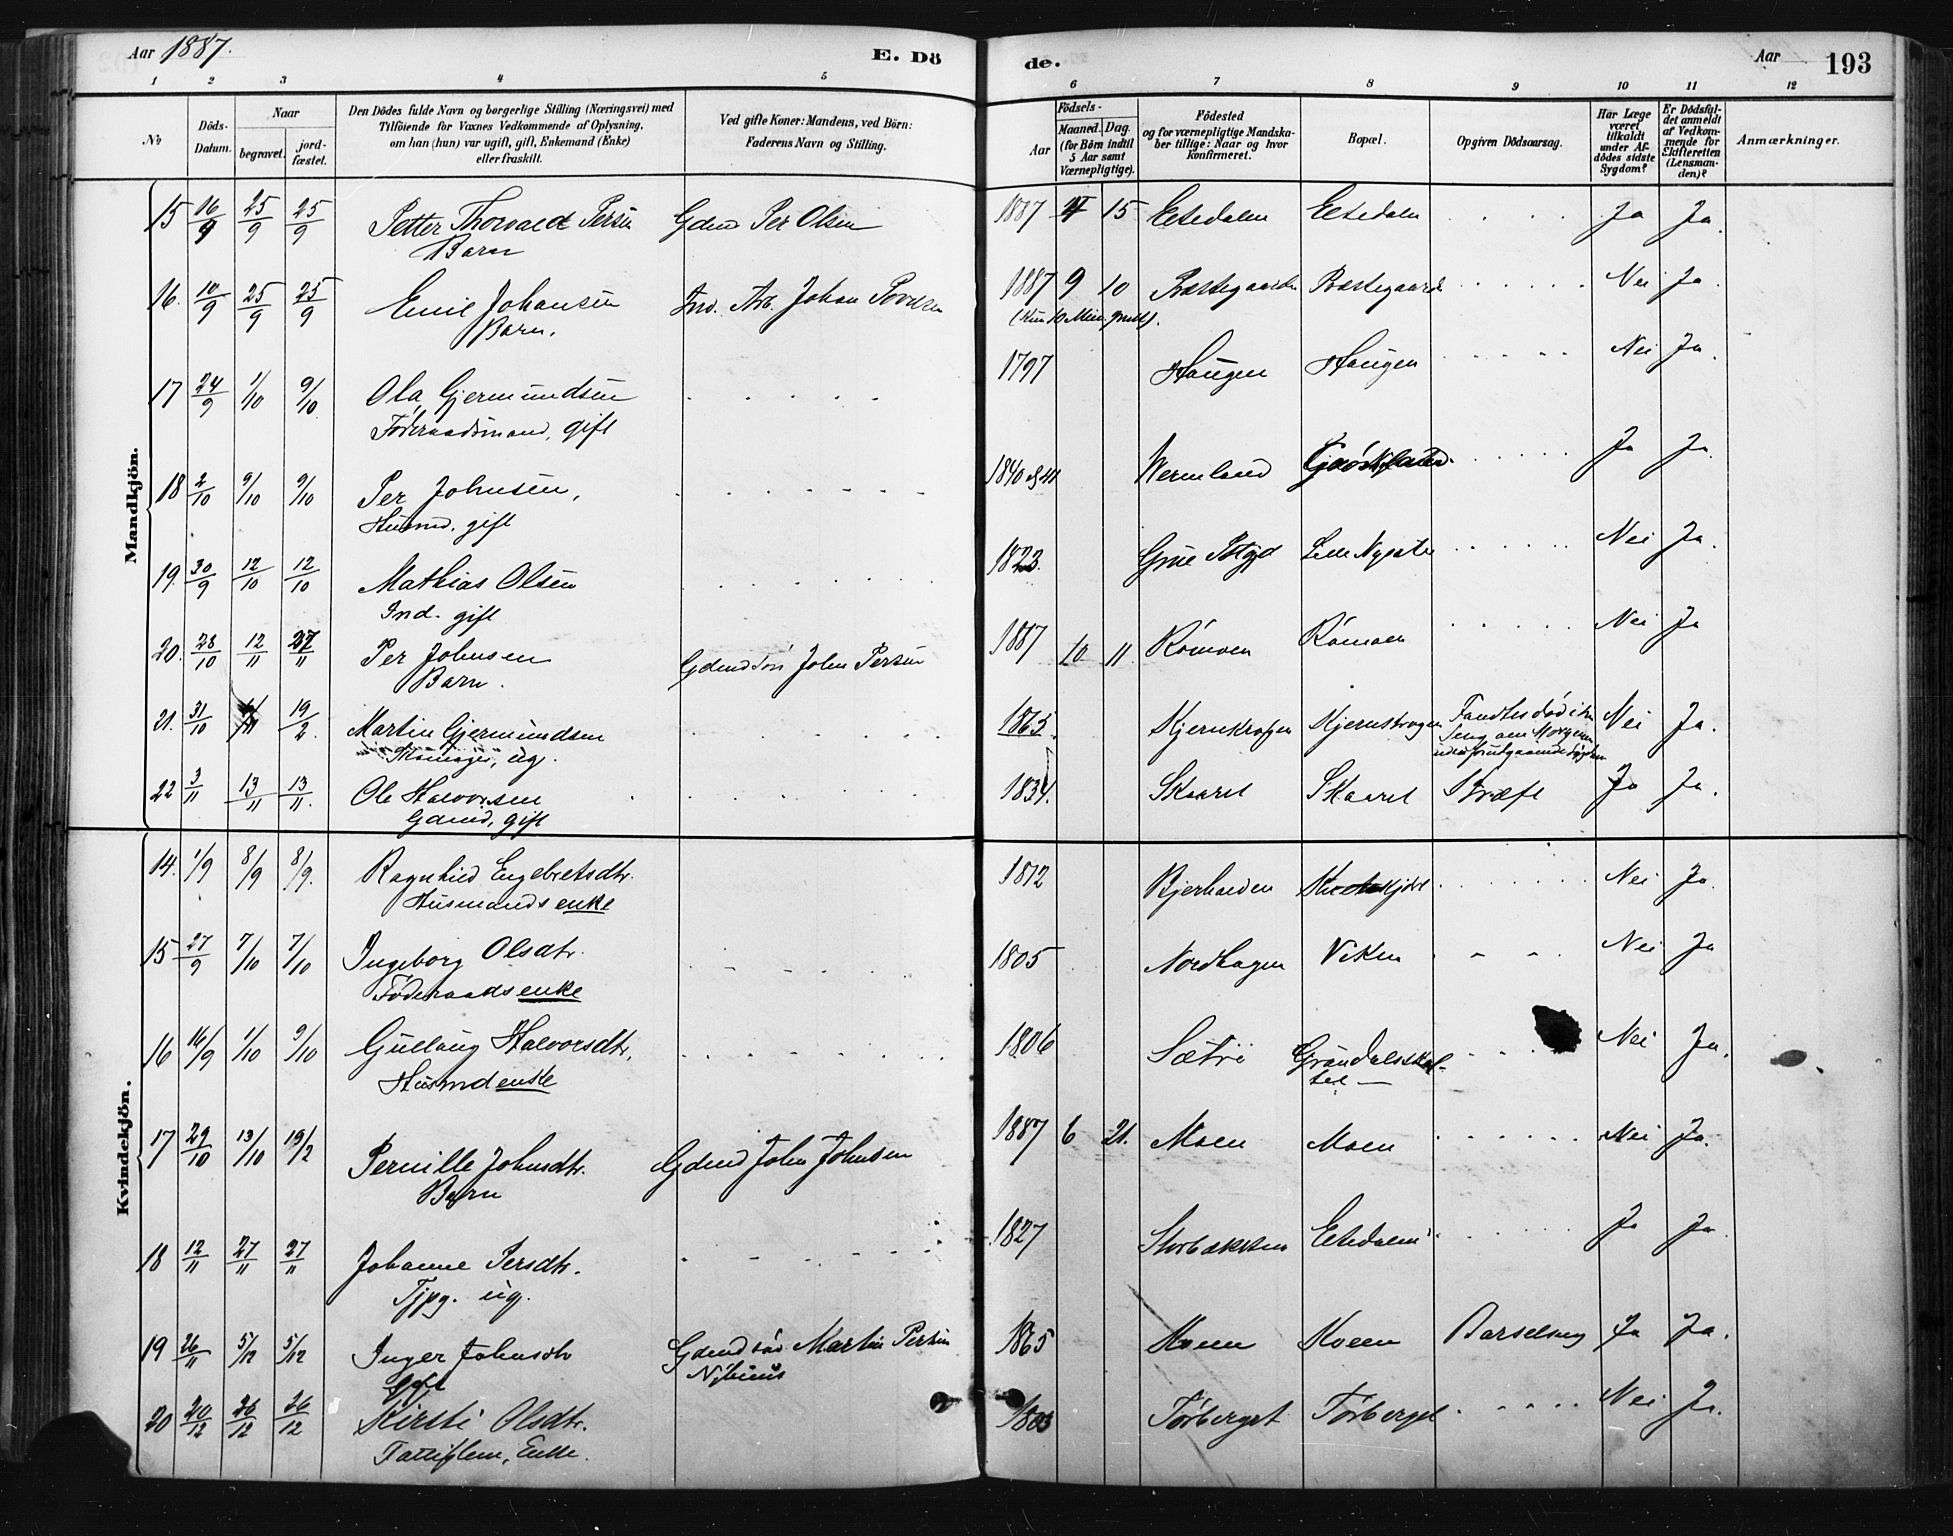 Aar 1887.
E. Dö
de.
Aar
193
1 2 3 4 5 6 7 8 9 10 11 12
No
Döds-Datum.
Naar
begravet.
jord-fæstet.
Den Dödes fulde Navn og borgerlige Stilling (Næringsvei) med
Tilföiende for Voxnes Vedkommende af Oplysning,
om han (hun) var ugift, gift, Enkemand (Enke)
eller fraskilt.
Ved gifte Koner: Mandens, ved Börn:
Faderens Navn og Stilling.
Födsels-
Aar
Maaned. Dag.
(for Börn indtil
5 Aar samt
Værnepligtige).
Födested
og for værnepligtige Mandska-
ber tillige: Naar og hvor
konfirmeret.
Bopæl.
Opgiven Dödsaarsag.
Har Læge
været
tilkaldt
under Af-
dödes sidste
Sygdom?
Er Dödsfal-
det anmeldt
af Vedkom-
mende for
Skifteretten
(Lensman-
den)?
Anmærkninger.
Mandkjön.
15 16/9 25/9 25/9 Petter Thorvald Persen Gdmd Per Olsen 1887 15 Ja Ja.
Barn
16. 10/9 25/9 25/9 Emil Johansen Ind. Arb. Johan 1887 9 10 Præstegaarden Præstegaarden Nei Ja.
Barn.
(Kun 10 Min. gml.).
17 24/9 1/10 9/10 Ola Gjermundsen 1797 Haugen Haugen Nei Ja.
Föderaadsmand, gift
18 2/10 9/10 9/10 Per Johnsen, 1840 el 41 Wermland Ja Ja.
Husmd. gift
19. 30/9 12/10 12/10 Mathias Olsen 1823. Grue Nei Ja.
Ind. gift
20. 28/10 12/11 27/11 Per Johnsen Gdmd Sön John Persen 1887 10. 11. Römoen Römoen Nei Ja
Barn.
21. 31/10 19/2. Martin Gjermundsen 1865. Fandtes död i sin Nei Ja.
ug. Seng om Morgenen
22 3/11 13/11 13/11. Ole Halvorsen 1834. Skaaret Skaaret Ja Ja.
Gdmd, gift
Kvindekjön.
14. 1/9 8/9 8/9. Ragnhild Engebretsdtr. 1812 Nei Ja.
Husmands enke
15 27/9 7/10 7/10 Ingeborg Olsdtr. 1805 Nordhagen Viken Nei Ja
Föderaads enke
16 16/9 1/10 9/10 Gullaug Halvorsdtr. 1806 Sætre Nei Ja.
Husmd enke
17 29/10 13/10 19/2 Pernille Johnsdtr. Gdmd John Johnsen 1887 6 21. Moen Moen Nei Ja.
Barn
18 12/11 27/11 27/11 Johanne Persdtr. 1827 Ja Ja.
Tjpg. ug.
19 26/11 5/12 5/12 Inger Johnsdtr Gdmd Martin Persen 1865 Moen Moen Barselseng Ja Ja.
Gift
20 20/12 26/12 26/12 Kirsti Olsdtr. Törberget Törberget Nei Ja.
Fattiglem, Enke.